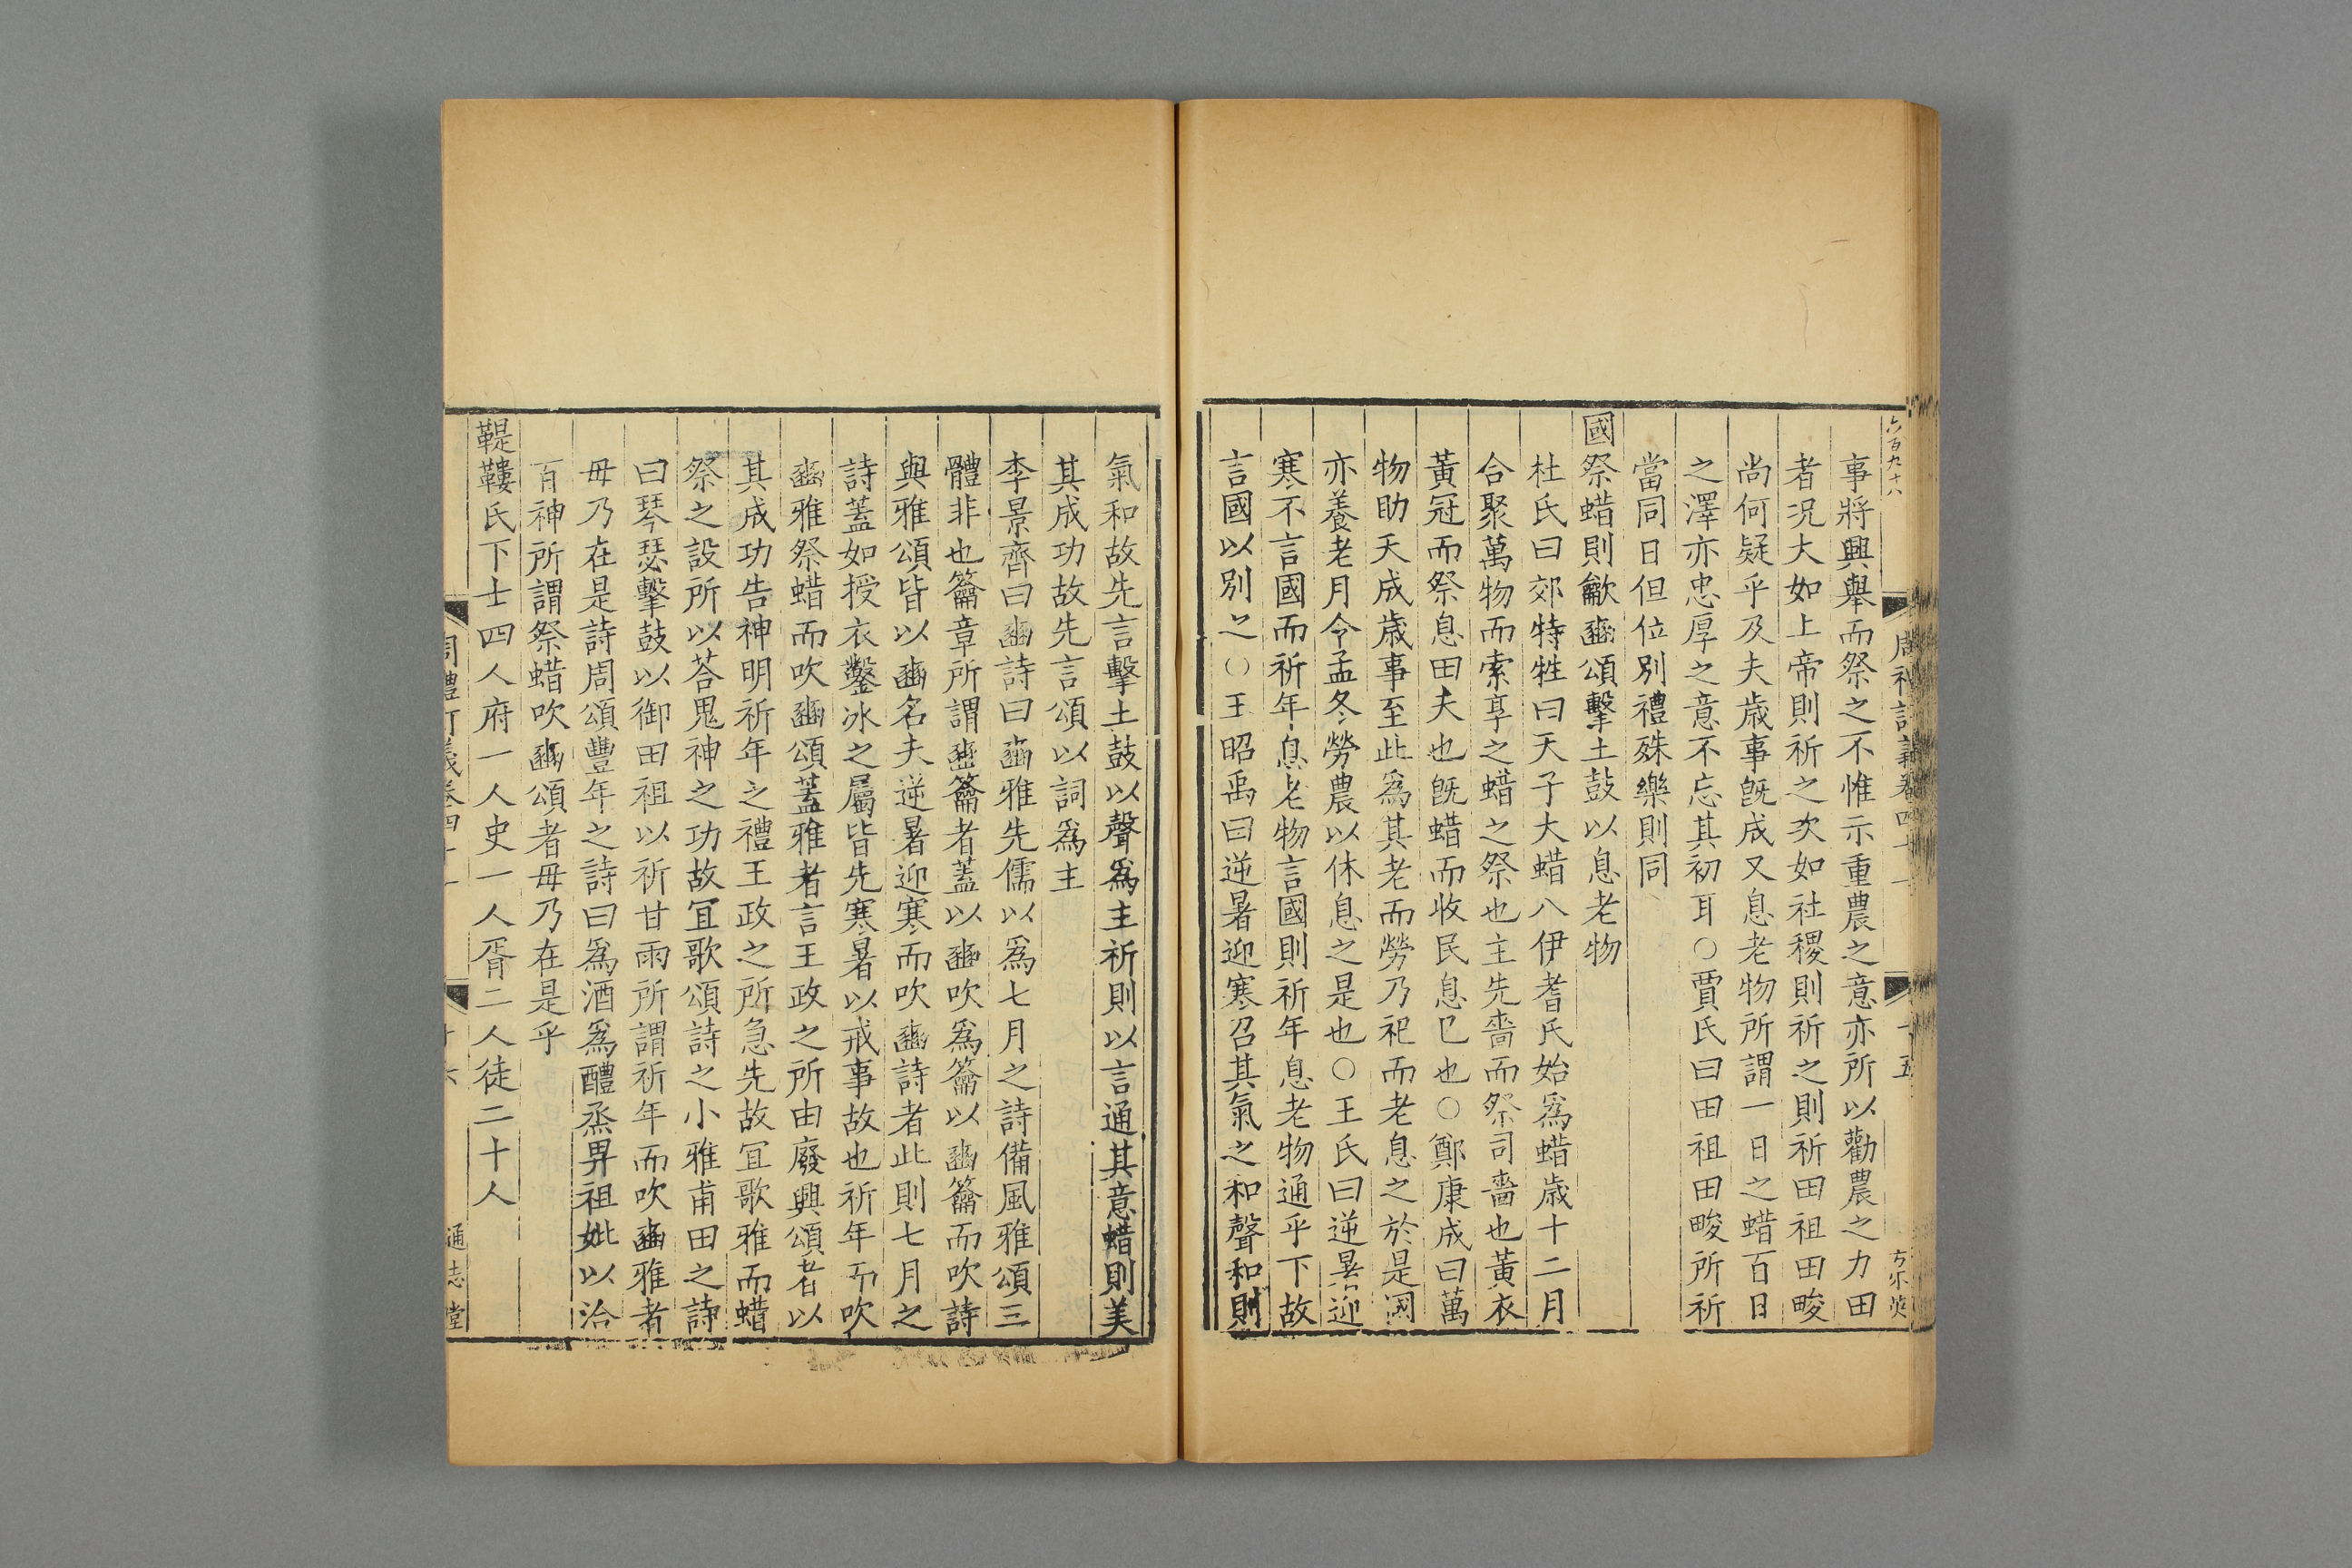 六百九十八
事將興舉而祭之不惟示重農之意亦所以勸農之力田
者況大如上帝則祈之次如社稷則祈之則祈田祖田畯
尚何疑乎及夫歲事旣成又息老物所謂一日之蜡百日
之澤亦忠厚之意不忘其初耳○賈氏曰田祖田畯所祈
當同日但位別禮殊樂則同
國祭蜡則龡豳頌擊土鼓以息老物
杜氏曰郊特牲曰天子大蜡八伊耆氏始爲蜡歲十二月
合聚萬物而索享之蜡之祭也主先嗇而祭司嗇也黃衣
黃冠而祭息田夫也旣蜡而收民息已也○鄭康成曰萬
物助天成歲事至此爲其老而勞乃祀而老息之於是國
亦養老月令孟冬勞農以休息之是也○王氏曰逆暑迎
寒不言國而祈年息老物言國則祈年息老物通乎下故
言國以別之○王昭禹曰逆暑迎寒召其氣之和聲和則
氣和故先言擊土鼓以聲爲主祈則以言通其意蜡則美
其成功故先言頌以詞爲主
李景齊曰豳詩曰豳雅先儒以爲七月之詩備風雅頌三
體非也籥章所謂豳籥者蓋以豳吹爲籥以豳籥而吹詩
與雅頌皆以豳名夫逆暑迎寒而吹豳詩者此則七月之
詩蓋如授衣鑿冰之屬皆先寒暑以戒事故也祈年而吹
豳雅祭蜡而吹豳頌蓋雅者言王政之所由廢興頌者以
其成功告神明祈年之禮王政之所急先故宜歌雅而蜡
祭之設所以荅鬼神之功故宜歌頌詩之小雅甫田之詩
曰琴瑟擊鼓以御田祖以祈甘雨所謂祈年而吹豳雅者
毋乃在是詩周頌豐年之詩曰爲酒爲醴烝畀祖妣以洽
百神所謂祭蜡吹豳頌者毋乃在是乎
鞮鞻氏下士四人府一人史一人胥二人徒二十人
周禮訂義卷四十一
十六
通志堂